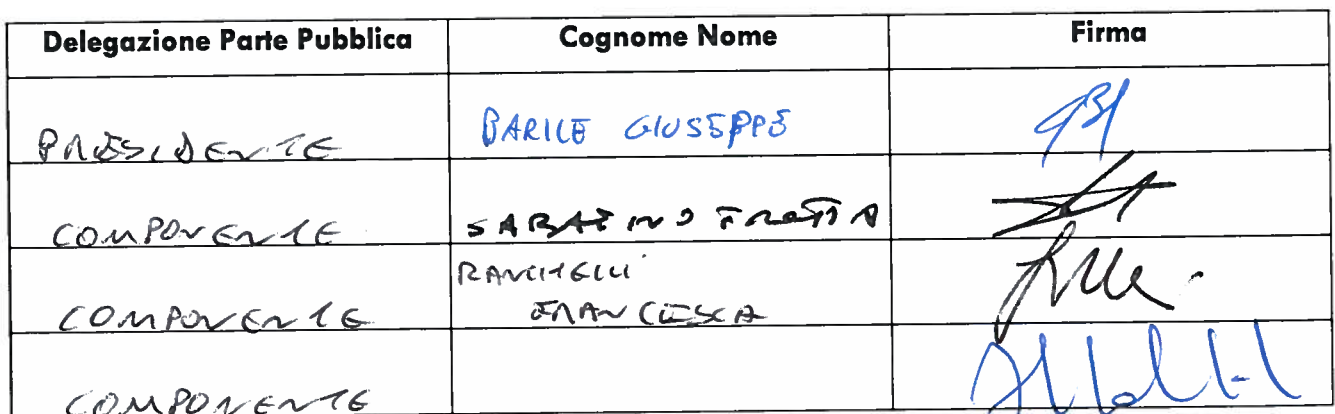 Delegazione Parte Pubblica Cognome Nome Firma
PRESIDENTE BARILE GIUSEPPE
COMPONENTE SABATINO FRATTA
RANCHELLI
COMPONENTE FRANCESCA
COMPONENTE